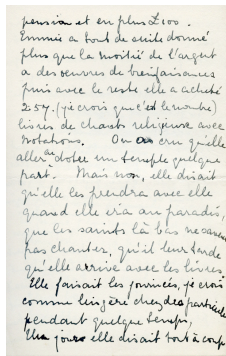 pension et en plus £100.
Emmie a tout de suite donné
plus que la moitié de l'argent
a des œuvres de bienfaisance
puis avec le reste elle a acheté
257. (je crois que c'est le nombre)
livres de chants religieuse avec
notations. On a cru qu'elle
allait doter un temple quelque
part. Mais non, elle disait
qu'elle les prendra avec elle
quand elle ira au paradis,
que les saints là bas ne
pas chanter, qu'il leur tarde
qu'elle arrive avec les livres.
Elle faisait les je crois
comme lingère chez des
pendant quelque temps,
Un jour elle disait tout à coup